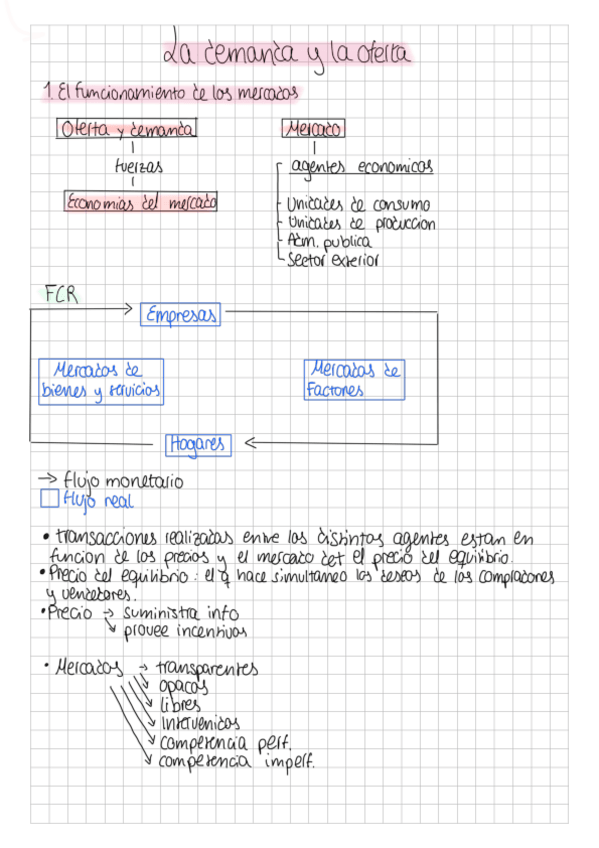 La demanda y la oferta
1. El funcionamiento de los mercados
Oferta y demanda
fuerzas
Economias del mercado
Mercado
agentes economicos
Unidades de consumo
Unidades de produccion
Adm. publica
Sector exterior
FCR
Empresas
Mercados de
bienes y servicios
Mercados de
Factores
Hogares
→ flujo monetario
flujo real
• transacciones realizadas entre los distintos agentes estan en
funcion de los precios y el mercado det el precio del equilibrio.
• Precio del equilibrio: el q hace simultaneo los deseos de los compradores
y vendedores.
• Precio → suministra info
↘ provee incentivos
• Mercados → transparentes
↘ opacos
↘ libres
↘ intervenidos
↘ competencia perf.
↘ competencia imperf.